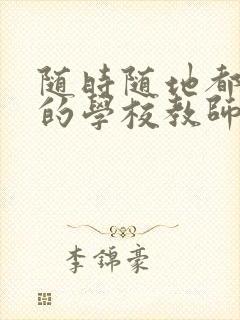 随時随地都
的學校教師
李錦豪